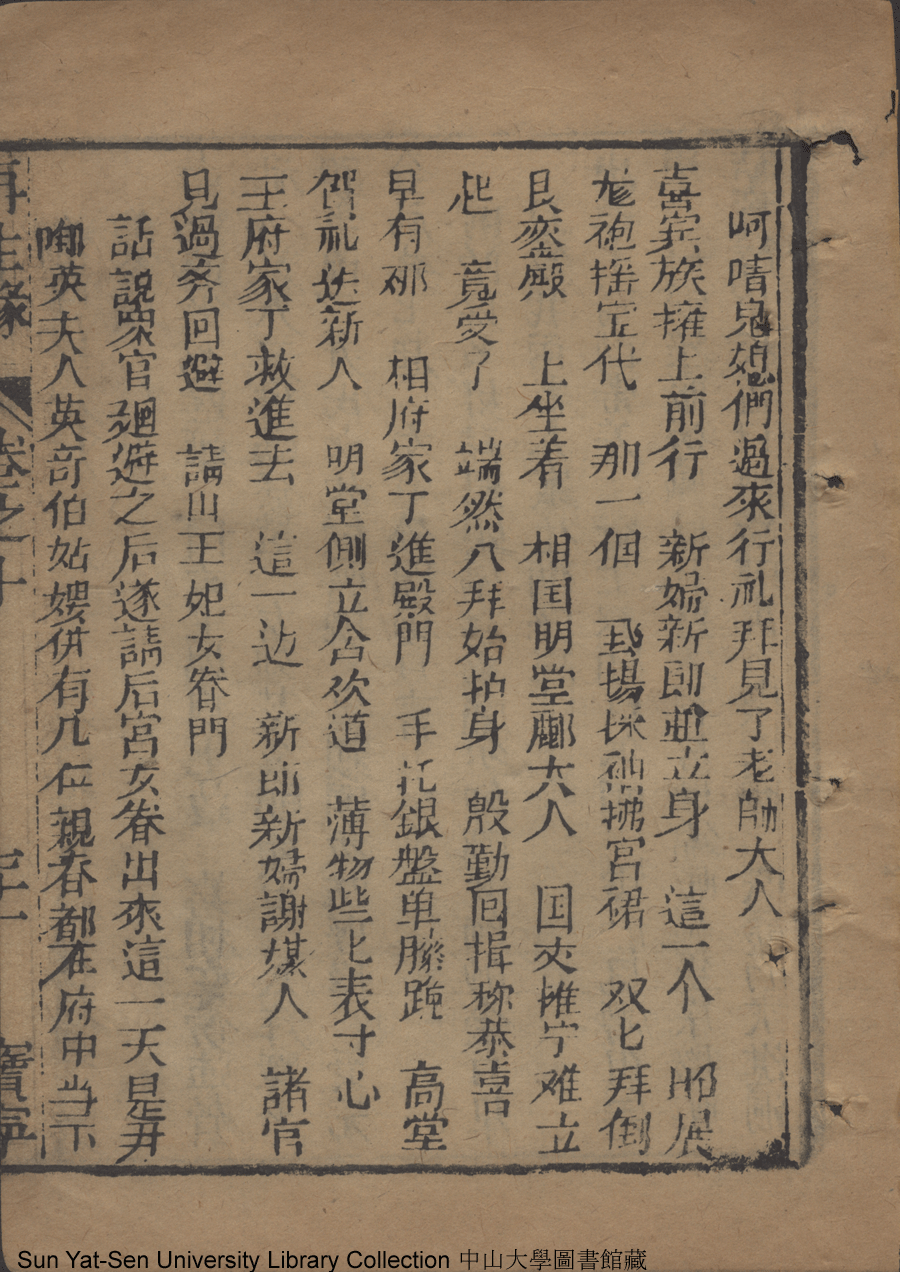 呵唷鬼娘們過來行礼拜見了老師大人
喜宾族擁上前行　新婦新郎並立身　這一个　𥘉展
尨袍揺宝代　那一個　𢒎揚採袖拂宮裙　双匕拜倒
艮銮殿　上坐着　相国明堂酈大人　国丈推宁难立
起　竟受了　端然八拜始抬身　殷勤囬揖称恭喜
早有那　相府家丁進殿門　手托銀盤单膝跪　高堂
贺礼送新人　明堂側立含欢道　薄物些匕表寸心
王府家丁救進去　這一边　新郎新婦謝媒人　諸官
見過齐回避　請出王妃女眷門
話說眾官廻避之后遂請后宮女眷出來這一天是尹
御英夫人英奇伯姑娘併有几位親眷都在府中当下
再生緣　卷之十　三十一　寶寧
Sun Yat-Sen University Library Collection 中山大學圖書館藏